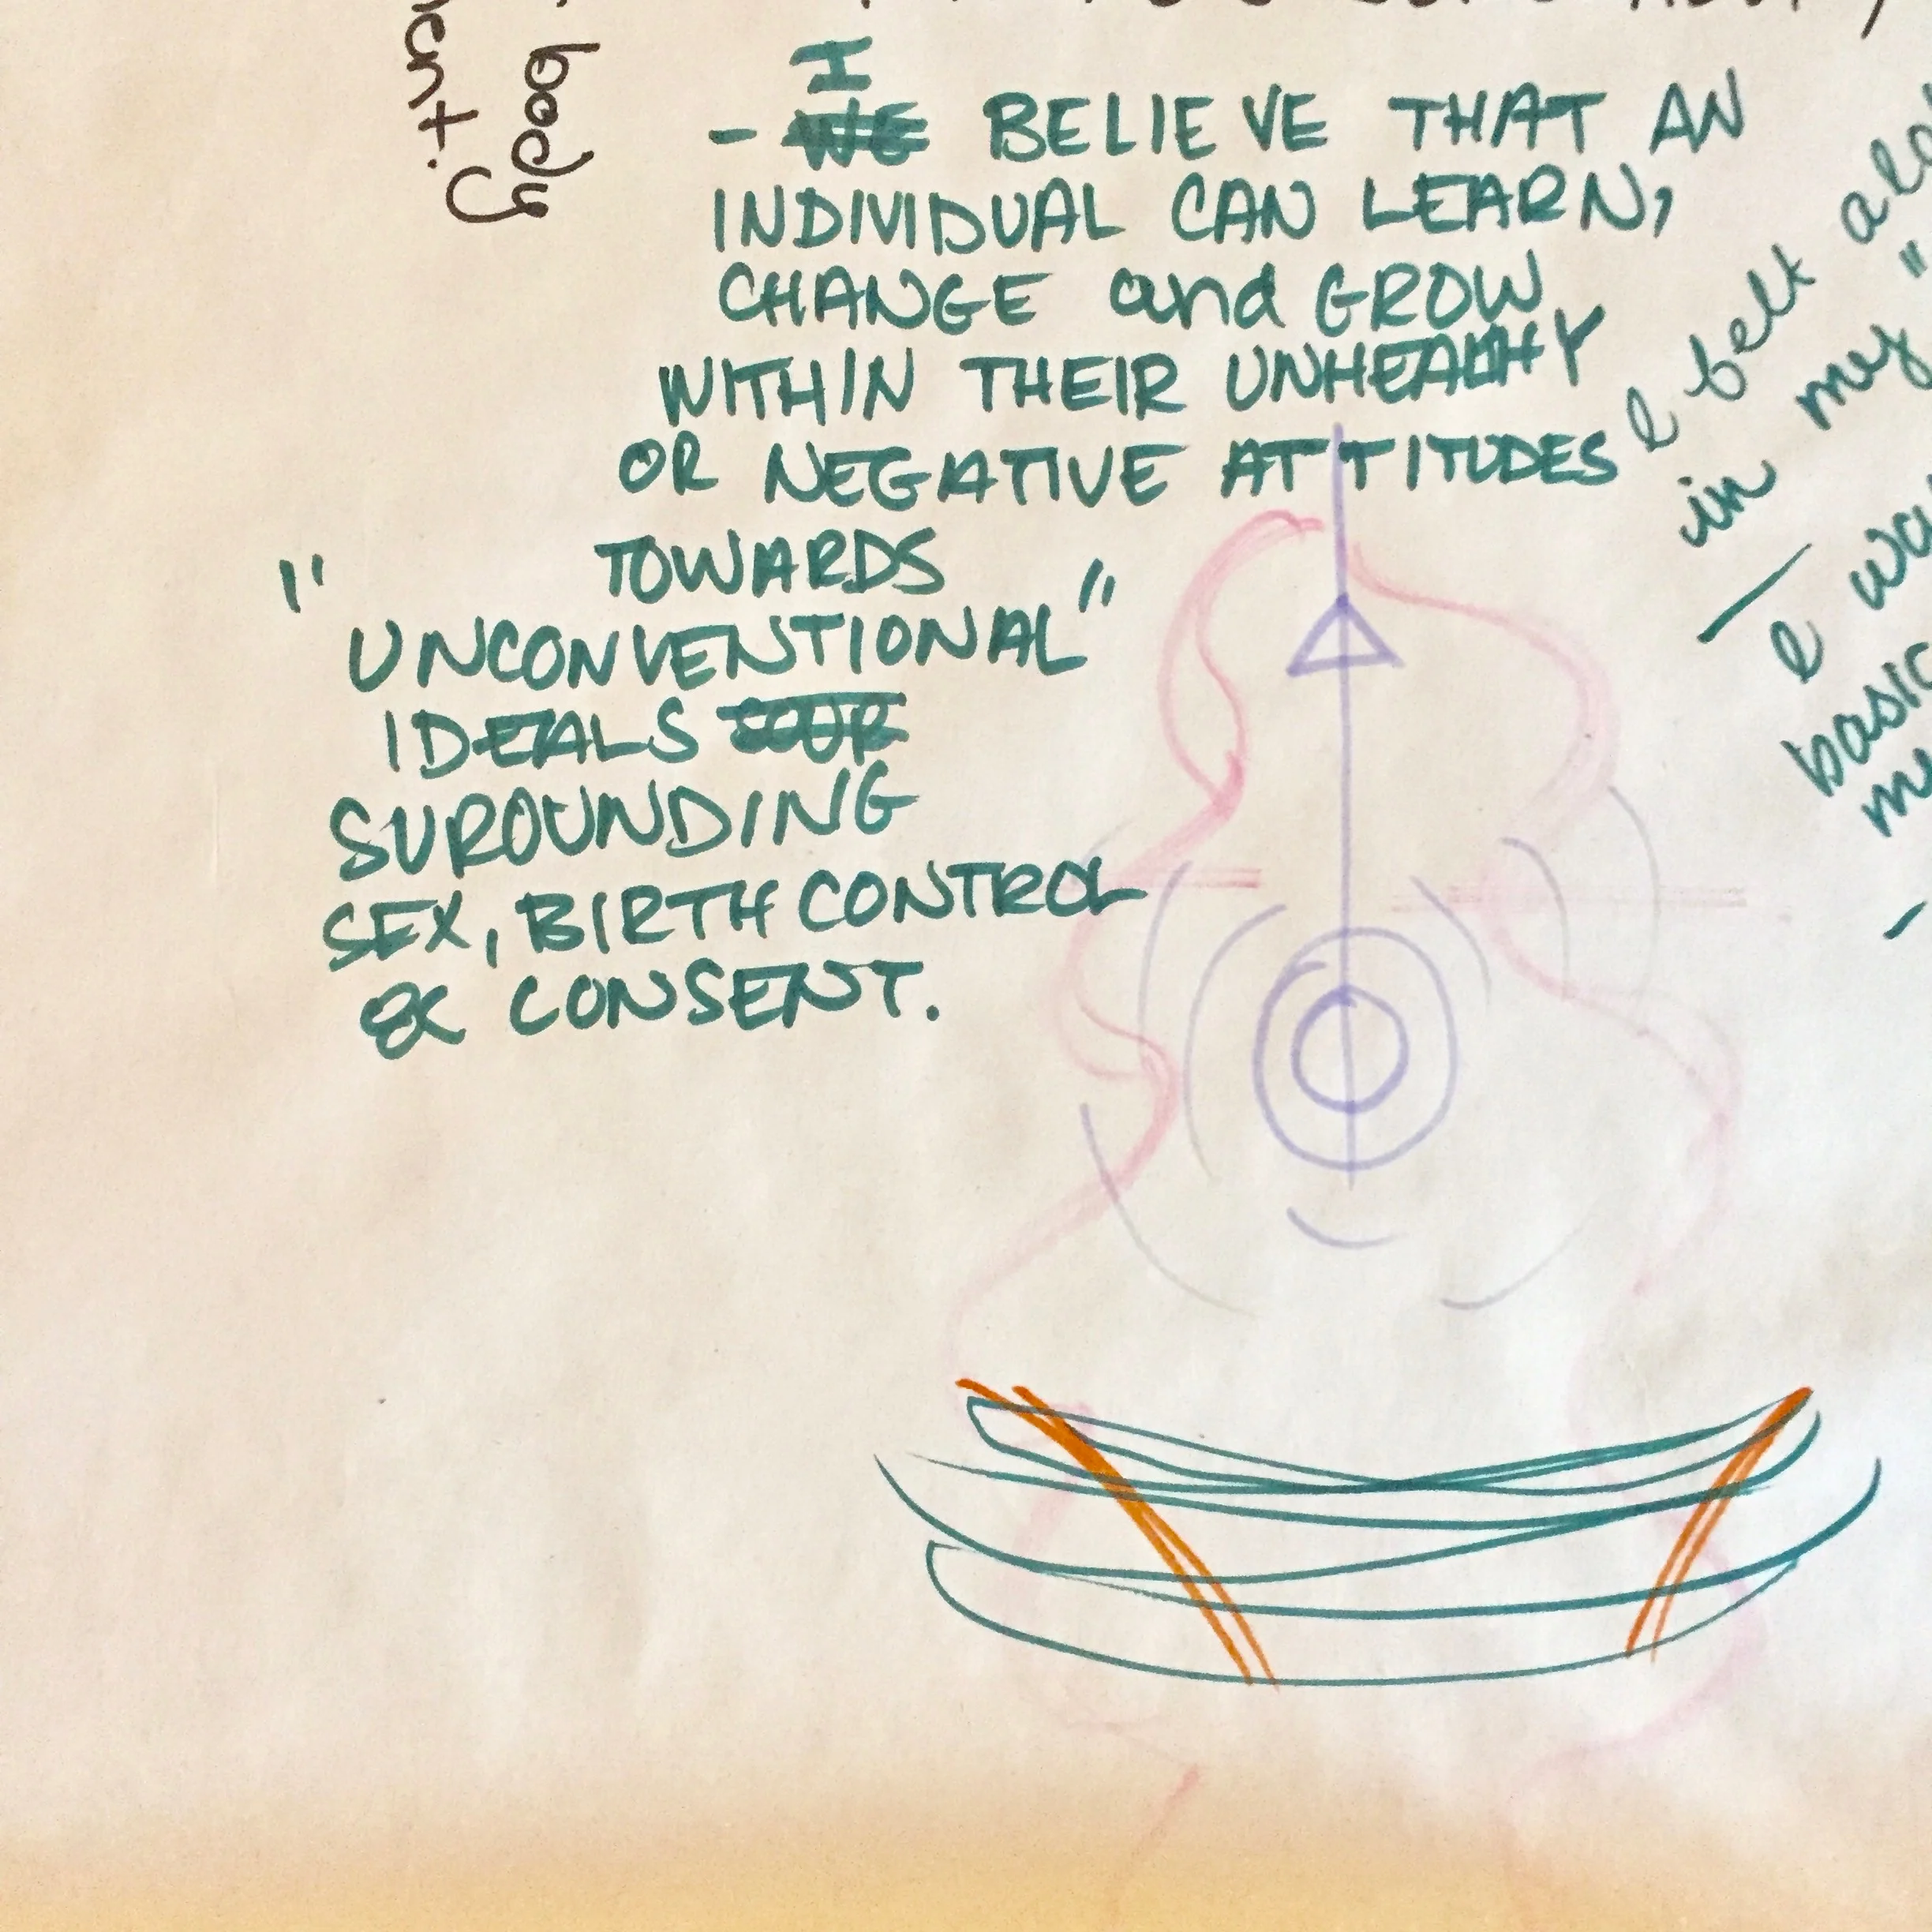 body
- I BELIEVE THAT AN
INDIVIDUAL CAN LEARN,
CHANGE and GROW
WITHIN THEIR UNHEALHY
OR NEGATIVE ATTITUDES
TOWARDS
"UNCONVENTIONAL"
IDEALS
SUROUNDING
SEX, BIRTH CONTROL
& CONSENT.
I belt
in my "
I
basic